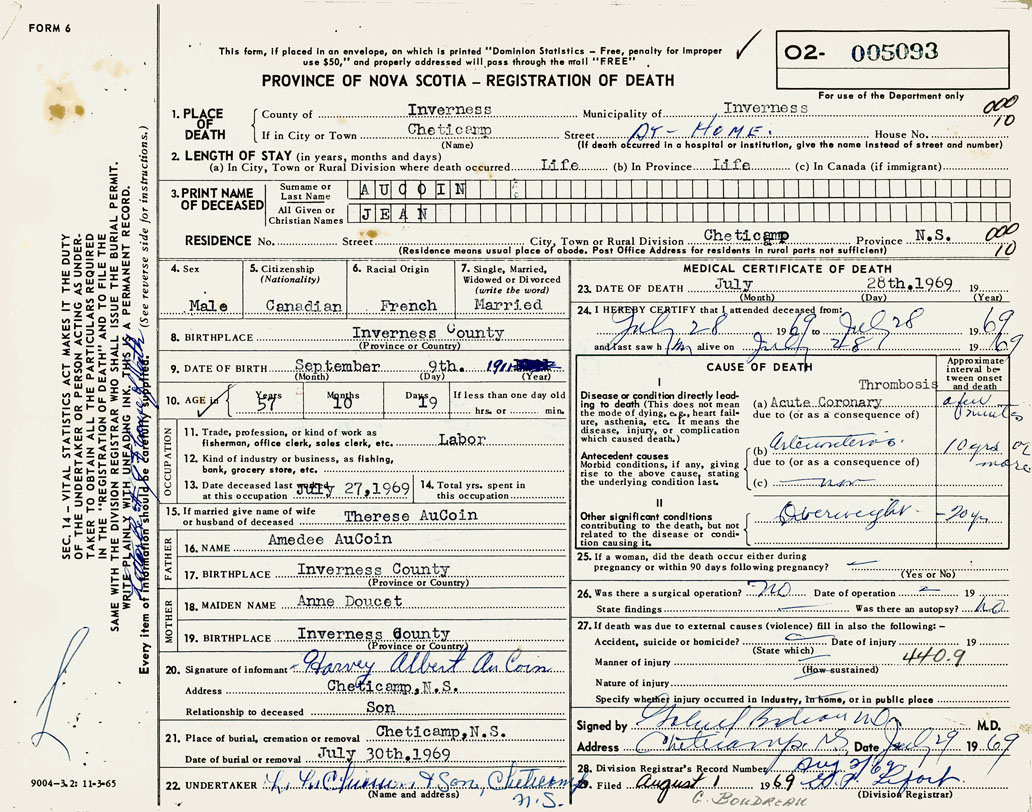 FORM 6
This form, if placed in an envelope, on which is printed "Dominion Statistics – Free, penalty for improper
use $50," and properly addressed will pass through the mail "FREE"
O2- 005093
For use of the Department only
PROVINCE OF NOVA SCOTIA – REGISTRATION OF DEATH
1. PLACE OF DEATH
County of Inverness Municipality of Inverness
000
10
If in City or Town Cheticamp Street AT - HOME. House No.
(Name) (If death occurred in a hospital or institution, give the name instead of street and number)
2. LENGTH OF STAY (in years, months and days)
(a) In City, Town or Rural Division where death occurred Life (b) In Province Life (c) In Canada (if immigrant)
3. PRINT NAME OF DECEASED
Surname or Last Name AUCOIN
All Given or Christian Names JEAN
RESIDENCE No. Street City, Town or Rural Division Cheticamp Province N.S.
000
10
(Residence means usual place of abode. Post Office Address for residents in rural parts not sufficient)
4. Sex Male
5. Citizenship (Nationality) Canadian
6. Racial Origin French
7. Single, Married, Widowed or Divorced (write the word) Married
8. BIRTHPLACE Inverness County
(Province or Country)
9. DATE OF BIRTH September 9th. 1911
(Month) (Day) (Year)
10. AGE in Years 57 Months 10 Days 19 If less than one day old hrs. or min.
OCCUPATION
11. Trade, profession, or kind of work as
fisherman, office clerk, sales clerk, etc. Labor
12. Kind of industry or business, as fishing,
bank, grocery store, etc.
13. Date deceased last at this occupation July 27,1969
14. Total yrs. spent in this occupation
15. If married give name of wife or husband of deceased Therese AuCoin
FATHER
16. NAME Amedee AuCoin
17. BIRTHPLACE Inverness County
(Province or Country)
MOTHER
18. MAIDEN NAME Anne Doucet
19. BIRTHPLACE Inverness County
(Province or Country)
20. Signature of informant Harvey Albert AuCoin
Address Cheticamp,N.S.
Relationship to deceased Son
21. Place of burial, cremation or removal Cheticamp,N.S.
Date of burial or removal July 30th.1969
22. UNDERTAKER & Son, Cheticamp
(Name and address) N.S.
MEDICAL CERTIFICATE OF DEATH
23. DATE OF DEATH July 28th.1969 19
(Month) (Day) (Year)
24. I HEREBY CERTIFY that I attended deceased from:
July 28 1969 to July 28 1969
and last saw h im alive on July 28 1969
CAUSE OF DEATH
Approximate interval between onset and death
I
Disease or condition directly leading to death (This does not mean
the mode of dying, e.g., heart failure, asthenia, etc. It means the
disease, injury, or complication
which caused death.)
Thrombosis
(a) Acute Coronary a few minutes
due to (or as a consequence of)
Antecedent causes
Morbid conditions, if any, giving
rise to the above cause, stating
the underlying condition last.
(b) 10 yrs or more
due to (or as a consequence of)
(c)
II
Other significant conditions
contributing to the death, but not
related to the disease or condition causing it.
Overweight - 20 yr
25. If a woman, did the death occur either during
pregnancy or within 90 days following pregnancy?
(Yes or No)
26. Was there a surgical operation? No Date of operation 19
State findings Was there an autopsy? No
27. If death was due to external causes (violence) fill in also the following: –
Accident, suicide or homicide? Date of injury 19
(State which)
Manner of injury 440.9
(How sustained)
Nature of injury
Specify whether injury occurred in Industry, in home, or in public place
Signed by M.D.
Address Cheticamp N.S. Date July 29 1969
28. Division Registrar's Record Number
Aug 2/69
29. Filed August 1 1969
(Division Registrar)
G. BOUDREAU
SEC. 14 – VITAL STATISTICS ACT MAKES IT THE DUTY
OF THE UNDERTAKER OR PERSON ACTING AS UNDER-
TAKER TO OBTAIN ALL THE PARTICULARS REQUIRED
IN THE "REGISTRATION OF DEATH" AND TO FILE THE
SAME WITH THE DIVISION REGISTRAR WHO SHALL ISSUE THE BURIAL PERMIT.
WRITE PLAINLY WITH UNFADING INK. THIS IS A PERMANENT RECORD.
Every item of information should be carefully supplied. (See reverse side for instructions.)
9004–3.2: 11-3-65